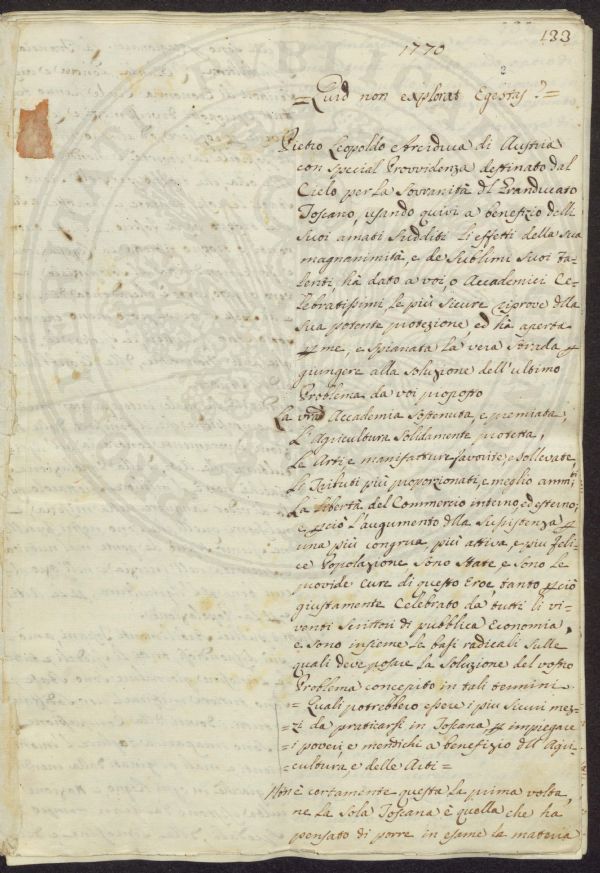 133
1770
=Quid non explorat Egestas?=
Pietro Leopoldo Arciduca di Austria
con special Provvidenza destinato dal
Cielo per la Sovranità del Granducato
Toscano, usando quivi a benefizio delli
Suoi amati Sudditi li effetti della Sua
magnanimità, e de Sublimi Suoi ta-
lenti, hà dato a voi, o Accademici Ce-
lebratissimi, le più sicure riprove della
Sua potente protezione, ed hà aperta
ꝑ me, e spianata la vera Strada ꝑ
giungere alla soluzione dell'ultimo
Problema da voi proposto
La vrã Accademia Sostenuta, e premiata,
L'Agricultura Solidamente protetta,
Le Arti e manifatture favorite, e sollevate,
Li Tributi più proporzionati, e meglio
La libertà del Commercio interno, ed esterno;
e ꝑciò l'augumento della Sussistenza ꝑ
una più congrua, più attiva, e più feli-
ce Popolazione, Sono State, e Sono le
provide cure di questo Eroe, tanto ꝑciò
giustamente Celebrato da tutti li vi-
venti Scrittori di pubblica Economia,
e Sono insieme le basi radicali sulle
quali deve posare la Soluzione del vostro
Problema concepito in tali termini
= Quali potrebbero essere i più sicuri mez-
= zi da praticarsi in Toscana ꝑ impiegare
= i poveri, e mendichi a benefizio dll'Agri-
= cultura, e delle Arti =
Non è certamente questa la prima volta,
ne la sola Toscana è quella che ha
pensato di porre in esame la materia